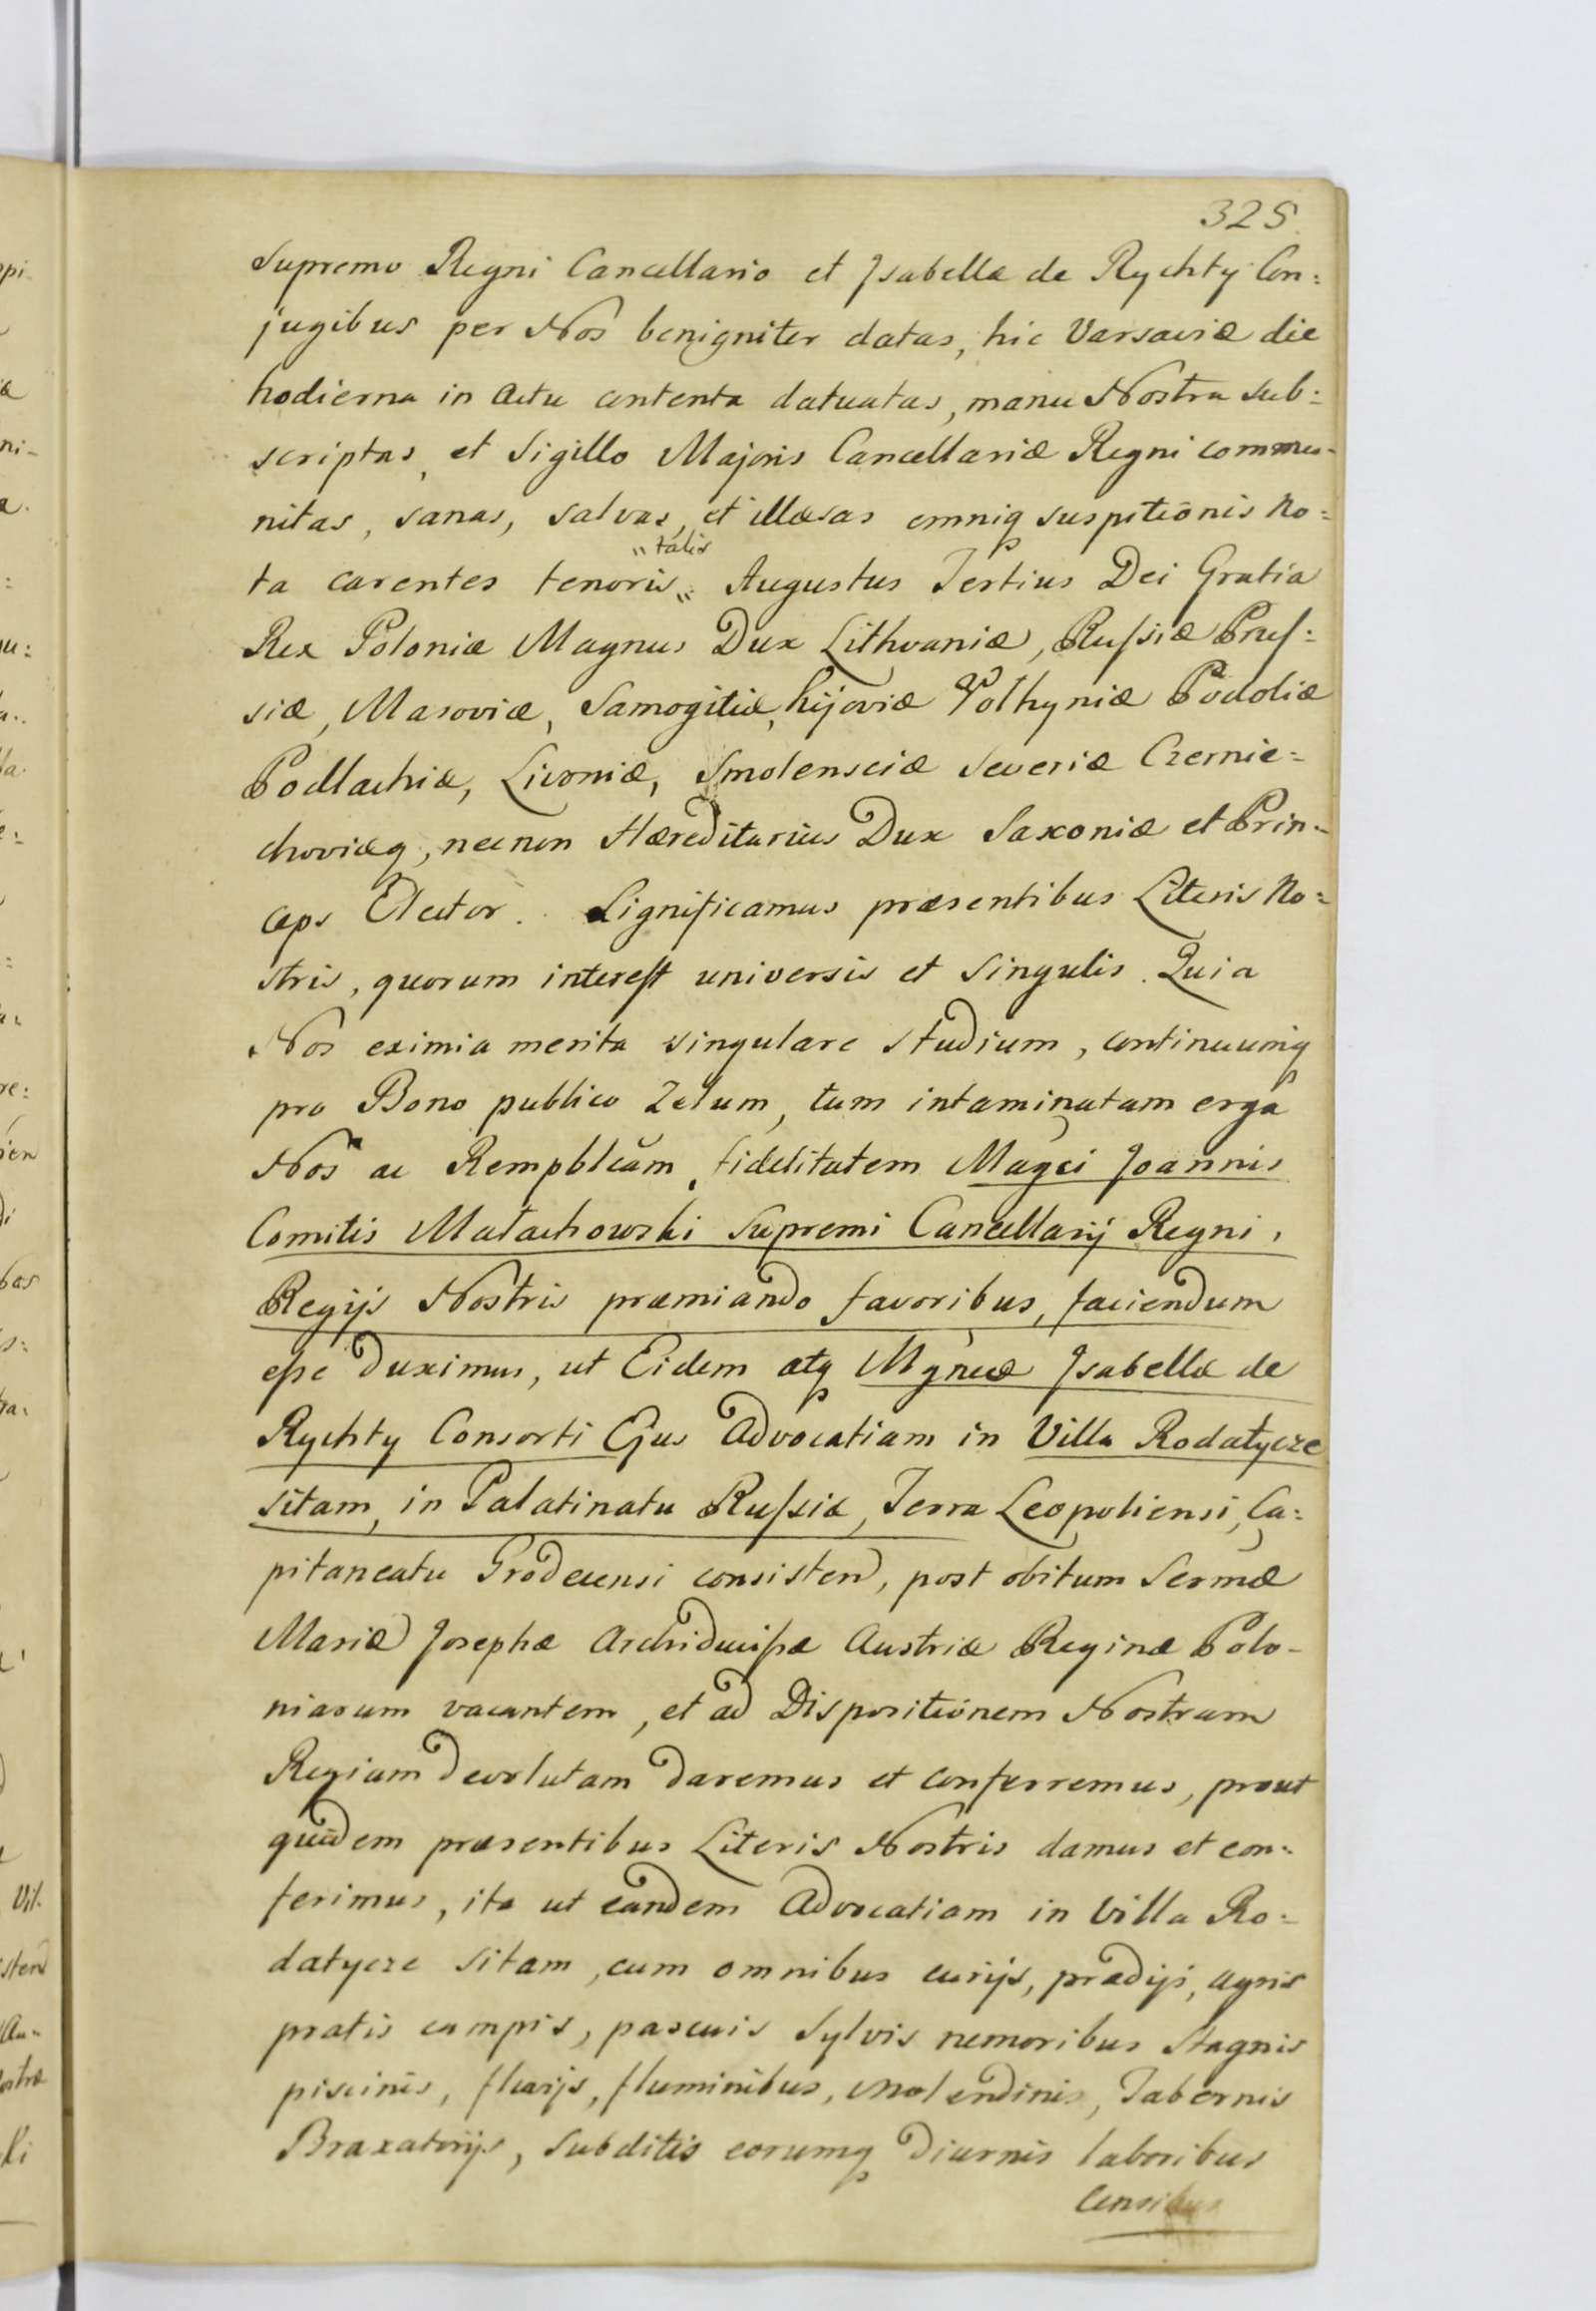 325.
Supremo Regni Cancellario et Jsabellæ de Rychty Con:
jugibus per Nos benigniter datas, hic Varsaviæ die
hodierna in Actu contenta datuatas, manu Nostra sub:
scriptas, et Sigillo Majoris Cancellariæ Regni commu-
nitas, sanas, salvas, et illæsas omniq suspitiōnis no:
"talis
ta carentes tenoris„ Augustus Tertius Dei Gratia
Rex Poloniæ Magnus Dux Lithvaniæ, Rußiæ Pruſ:
siæ, Masoviæ, Samogitiæ, Kijoviæ Volhyniæ Podoliæ
Podlachiæ, Livoniæ, Smolensciæ Severiæ Czernie:
choviæq, necnon Hæreditarius Dux Saxoniæ et Prin-
ceps Elector. Significamus præsentibus Literis No:
stris, quorum interest universis et Singulis. Quia
Nos eximia merita singulare studium, continuumq
pro Bono publico Zelum, tum intaminatam erga
Nos ac Rempblcam, fidelitatem Magci Joannis
Comitis Małachowski Supremi Cancellarij Regni,
Regijs Nostris præmiando favoribus, faciendum
eße duximus, ut Eidem atq Mgncæ Jsabellæ de
Rychty Consorti Ejus Advocatiam in Villa Rodatycze
sitam, in Palatinatu Rußiæ, Terra Leopoliensi, Ca:
pitaneatu Grodecensi consisten, post obitum Sermæ
Mariæ Josephæ Archiducißæ Austriæ Reginæ Polo-
niarum vacantem, et ad Dispositionem Nostram
Regiam devolutam daremus et conferremus, prout
quidem præsentibus Literis Nostris damus et con:
ferimus, ita ut eandem Advocatiam in Villa Ro:
datycze sitam, cum omnibus curijs, prædijs, agris
pratis campis, pascuis Sylvis nemoribus Stagnis
piscinis, fluvijs, fluminibus, molendinis, Tabernis
Braxatorijs, Subditis eorumq diurnis laboribus
Censibus